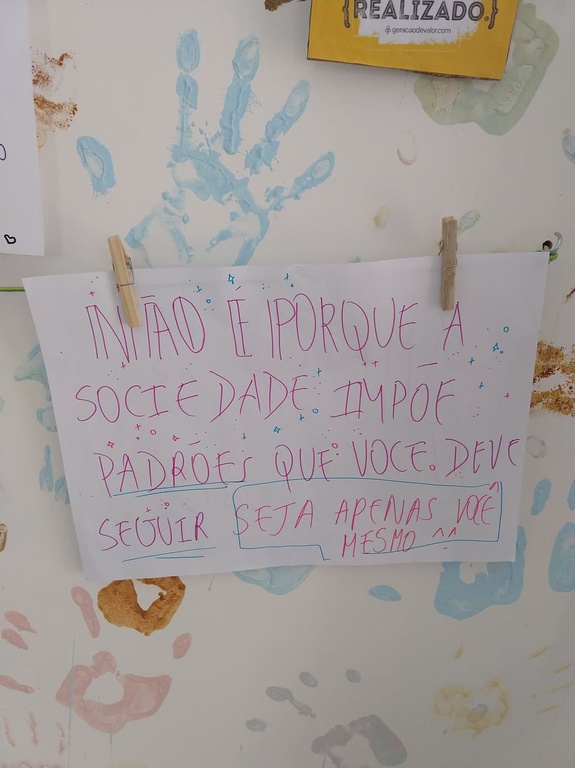 {REALIZADO.}
geracaodevalor.com
NÃO É PORQUE A
SOCIEDADE IMPÕE
PADRÕES QUE VOCE DEVE
SEGUIR SEJA APENAS VOCÊ
MESMO ^^